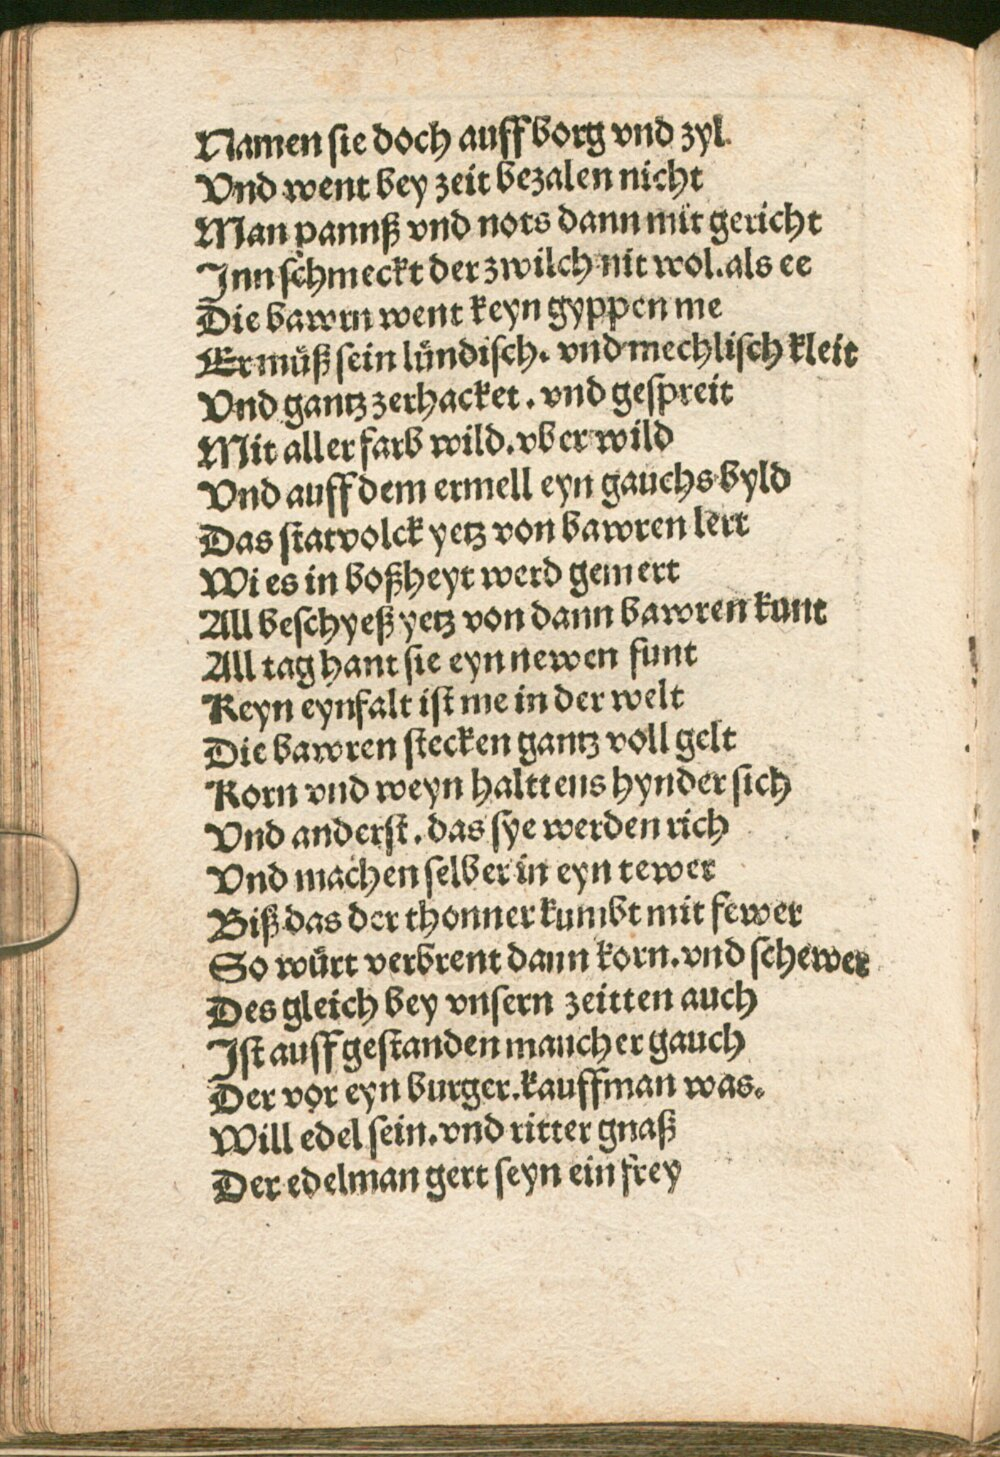 Namen sie doch auff borg vnd zyl.
Vnd went bey zeit bezalen nicht
Man pannß vnd nots dann mit gericht
Inn schmeckt der zwilch nit wol. als ee
Die bawrn went keyn gyppen me
Er müß sein lündisch. vnd mechlisch kleit
Vnd gantz zerhacket. vnd gespreit
Mit aller farb wild. vber wild
Vnd auff dem ermell eyn gauchs byld
Das statvolck yetz von bawren lert
Wi es in boßheyt werd gemert
All beschyeß yetz von dann bawren kunt
All tag hant sie eyn newen funt
Keyn eynfalt ist me in der welt
Die bawren stecken gantz voll gelt
Korn vnd weyn halttens hynder sich
Vnd anderst. das sye werden rich
Vnd machen selber in eyn tewer
Biß das der thonner kumbt mit fewer
So würt verbrent dann korn. vnd schewer
Des gleich bey vnsern zeitten auch
Ist auff gestanden maucher gauch
Der vor eyn burger. kauffman was.
Will edel sein. vnd ritter gnaß
Der edelman gert seyn ein frey